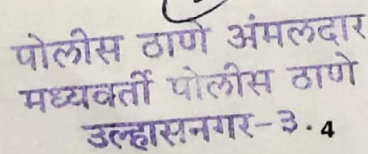 पोलीस ठाणे अंमलदार
मध्यवर्ती पोलीस ठाणे
उल्हासनगर-३.4